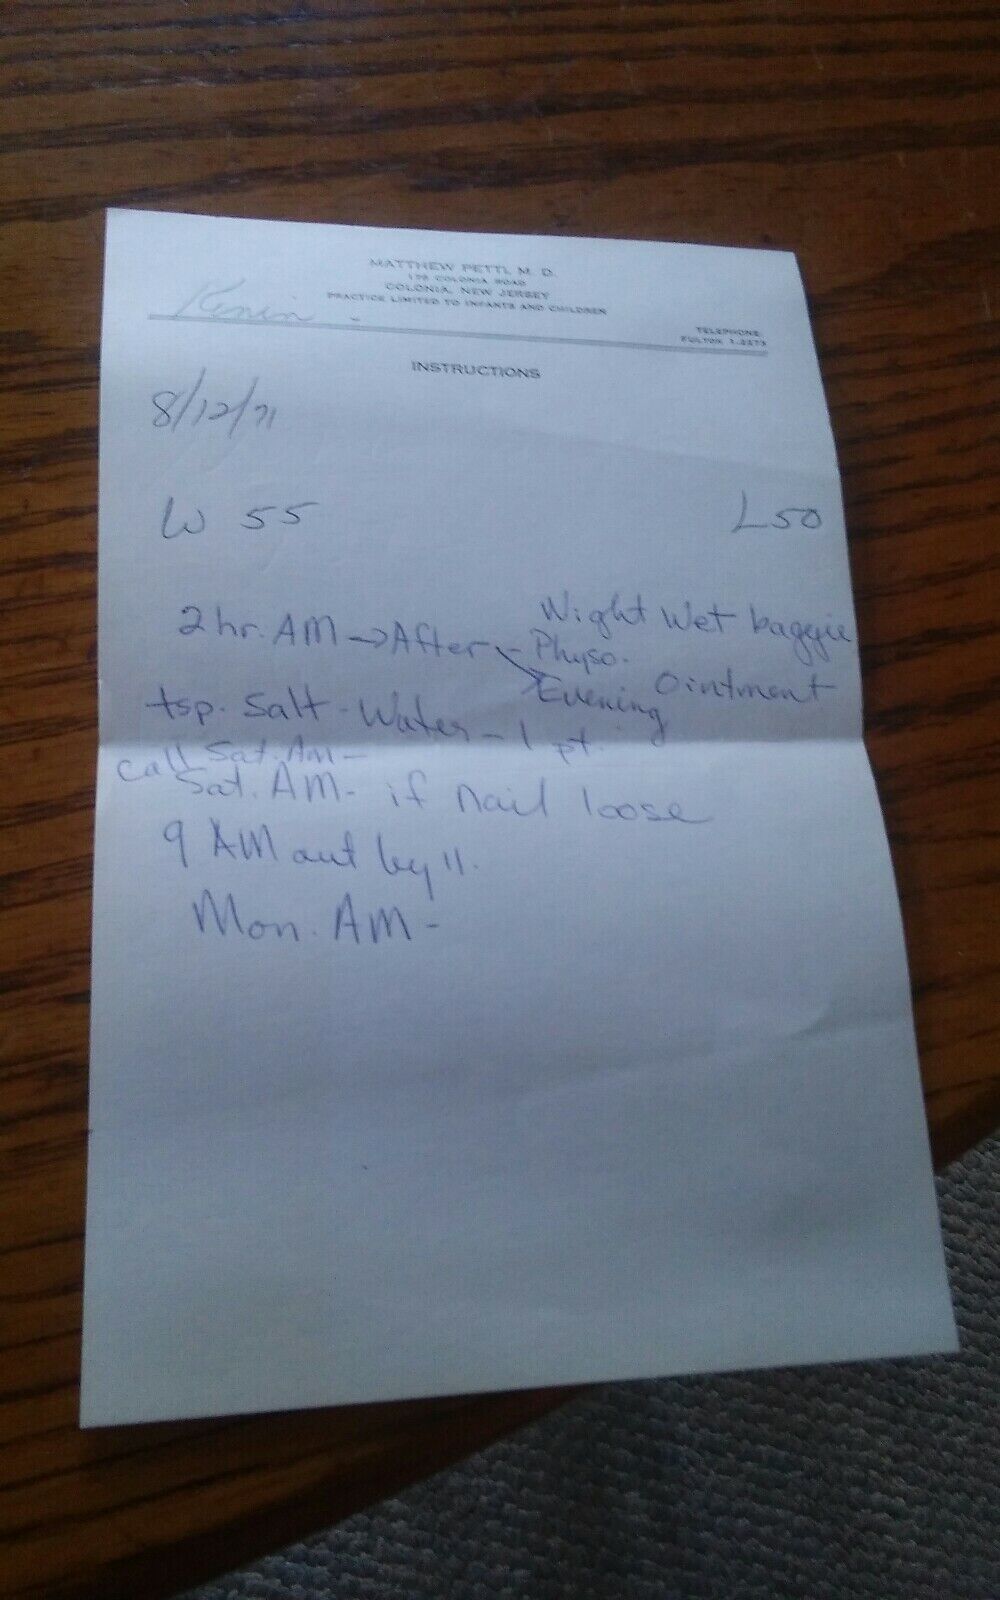 MATTHEW PETTI, M. D.
COLONIA ROAD
COLONIA, NEW JERSEY
PRACTICE LIMITED TO INFANTS AND CHILDREN
TELEPHONE:
FULTON
INSTRUCTIONS
8/12/71
W 55 L50
Night Wet baggie
2 hr. AM → After - Physo.
Evening Ointment
tsp. Salt - Water - 1 pt.
call Sat. Am -
Sat. AM - if nail loose
9 AM out by 11.
Mon. AM -